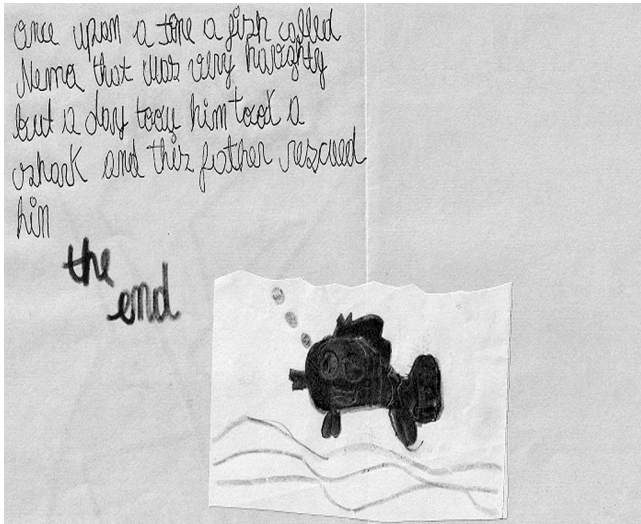 once upon a time a fish called
Nemo that was very naughty
but a day tooy him toot a
shark and this father rescued
him
the
end